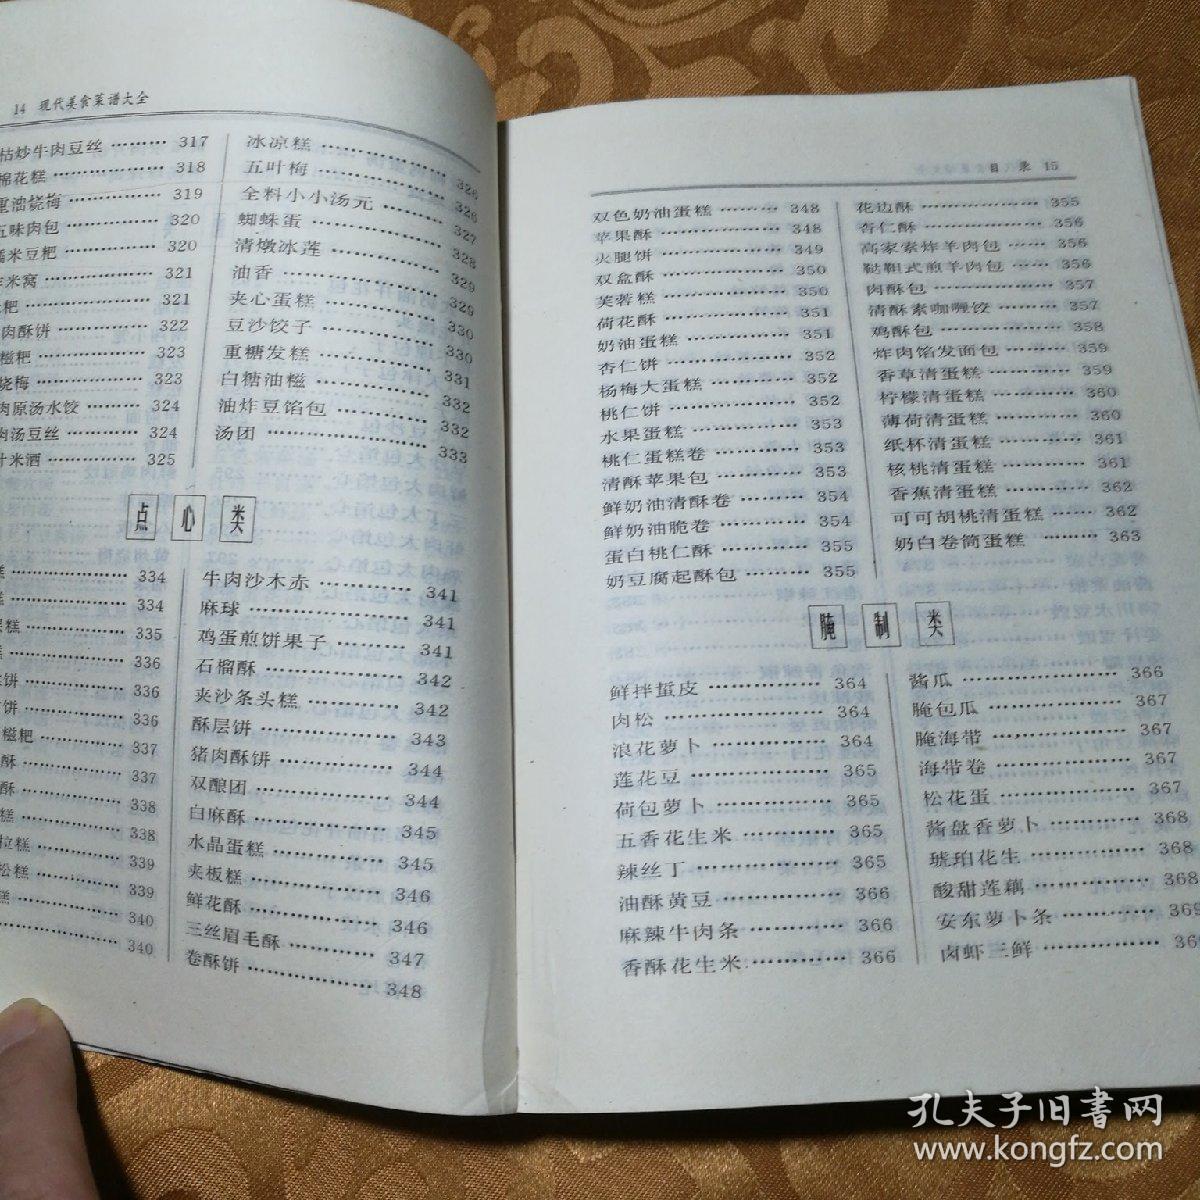 14 现代美食菜谱大全
枯炒牛肉豆丝 ……… 317
棉花糕 ……… 318
319
五味肉包 ……… 320
米豆粑 ……… 320
米窝 ……… 321
粑 ……… 321
肉酥饼 ……… 322
糍粑 ……… 323
烧梅 ……… 323
肉原汤水饺 ……… 324
肉汤豆丝 ……… 324
汁米酒 ……… 325
冰凉糕 ……… 326
五叶梅 ……… 326
全料小小汤元 ……… 327
蜘蛛蛋 ……… 328
清燉冰莲 ……… 329
油香 ……… 329
夹心蛋糕 ……… 330
豆沙饺子 ……… 330
重糖发糕 ……… 331
白糖油糍 ……… 332
油炸豆馅包 ……… 332
汤团 ……… 333
点心类
糕 ……… 334
糕 ……… 334
糕 ……… 335
糕 ……… 336
饼 ……… 336
饼 ……… 336
糍粑 ……… 337
酥 ……… 337
酥 ……… 338
糕 ……… 338
拉糕 ……… 339
松糕 ……… 339
糕 ……… 340
……… 340
牛肉沙木赤 ……… 341
麻球 ……… 341
鸡蛋煎饼果子 ……… 341
石榴酥 ……… 342
夹沙条头糕 ……… 342
酥层饼 ……… 343
猪肉酥饼 ……… 344
双酿团 ……… 344
白麻酥 ……… 345
水晶蛋糕 ……… 345
夹板糕 ……… 346
鲜花酥 ……… 346
三丝眉毛酥 ……… 347
卷酥饼 ……… 348
目 录 15
双色奶油蛋糕 ……… 348
苹果酥 ……… 348
火腿饼 ……… 349
双盒酥 ……… 350
芙蓉糕 ……… 350
荷花酥 ……… 351
奶油蛋糕 ……… 351
杏仁饼 ……… 352
杨梅大蛋糕 ……… 352
桃仁饼 ……… 352
水果蛋糕 ……… 353
桃仁蛋糕卷 ……… 353
清酥苹果包 ……… 353
鲜奶油清酥卷 ……… 354
鲜奶油脆卷 ……… 354
蛋白桃仁酥 ……… 355
奶豆腐起酥包 ……… 355
花边酥 ……… 355
杏仁酥 ……… 356
高家索炸羊肉包 ……… 356
鞑靼式煎羊肉包 ……… 356
肉酥包 ……… 357
清酥素咖喱饺 ……… 357
鸡酥包 ……… 358
炸肉馅发面包 ……… 359
香草清蛋糕 ……… 359
柠檬清蛋糕 ……… 360
薄荷清蛋糕 ……… 360
纸杯清蛋糕 ……… 361
核桃清蛋糕 ……… 361
香蕉清蛋糕 ……… 362
可可胡桃清蛋糕 ……… 362
奶白卷筒蛋糕 ……… 363
腌制类
鲜拌蜇皮 ……… 364
肉松 ……… 364
浪花萝卜 ……… 364
莲花豆 ……… 365
荷包萝卜 ……… 365
五香花生米 ……… 365
辣丝丁 ……… 365
油酥黄豆 ……… 366
麻辣牛肉条 ……… 366
香酥花生米 ……… 366
酱瓜 ……… 366
腌包瓜 ……… 367
腌海带 ……… 367
海带卷 ……… 367
松花蛋 ……… 367
酱盘香萝卜 ……… 368
琥珀花生 ……… 368
酸甜莲藕 ……… 368
安东萝卜条 ……… 369
卤虾三鲜 ……… 36
孔夫子旧書网
www.kongfz.com